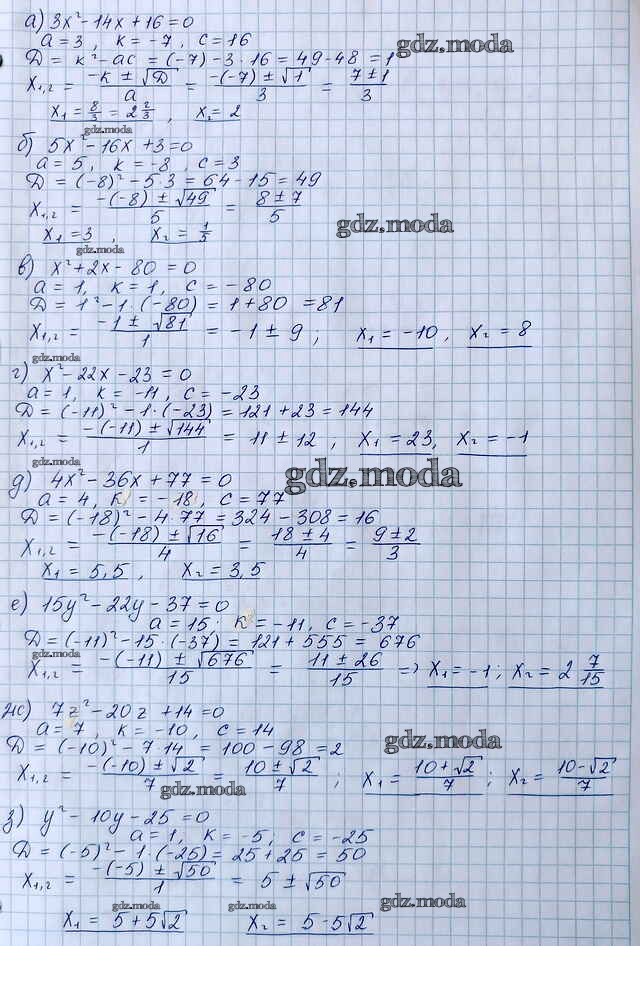 а) 3x² - 14x + 16 = 0
gdz.moda
a = 3, k = -7, c = 16
D = k² - ac = (-7) - 3 · 16 = 49 - 48 = 1
x₁,₂ = (-k ± √D)/a = (-(-7) ± √1)/3 = (7 ± 1)/3
x₁ = 8/3 = 2 2/3, x₂ = 2
gdz.moda
б) 5x² - 16x + 3 = 0
a = 5, k = -8, c = 3
D = (-8)² - 5·3 = 64 - 15 = 49
x₁,₂ = (-(-8) ± √49)/5 = (8 ± 7)/5
gdz.moda
x₁ = 3, x₂ = 1/5
gdz.moda
в) x² + 2x - 80 = 0
a = 1, k = 1, c = -80
D = 1² - 1 · (-80) = 1 + 80 = 81
x₁,₂ = (-1 ± √81)/1 = -1 ± 9; x₁ = -10, x₂ = 8
gdz.moda
г) x² - 22x - 23 = 0
a = 1, k = -11, c = -23
D = (-11)² - 1 · (-23) = 121 + 23 = 144
x₁,₂ = (-(-11) ± √144)/1 = 11 ± 12, x₁ = 23, x₂ = -1
gdz.moda
д) 4x² - 36x + 77 = 0
gdz.moda
a = 4, k = -18, c = 77
D = (-18)² - 4 · 77 = 324 - 308 = 16
x₁,₂ = (-(-18) ± √16)/4 = (18 ± 4)/4 = (9 ± 2)/3
x₁ = 5,5, x₂ = 3,5
е) 15y² - 22y - 37 = 0
a = 15; k = -11, c = -37
D = (-11)² - 15 · (-37) = 121 + 555 = 676
gdz.moda
x₁,₂ = (-(-11) ± √676)/15 = (11 ± 26)/15 => x₁ = -1; x₂ = 2 7/15
ж) 7z² - 20z + 14 = 0
a = 7, k = -10, c = 14
D = (-10)² - 7·14 = 100 - 98 = 2
gdz.moda
x₁,₂ = (-(-10) ± √2)/7 = (10 ± √2)/7; x₁ = (10 + √2)/7; x₂ = (10 - √2)/7
gdz.moda
з) y² - 10y - 25 = 0
a = 1, k = -5, c = -25
D = (-5)² - 1 · (-25) = 25 + 25 = 50
x₁,₂ = (-(-5) ± √50)/1 = 5 ± √50
gdz.moda
gdz.moda
gdz.moda
x₁ = 5 + 5√2 x₂ = 5 - 5√2